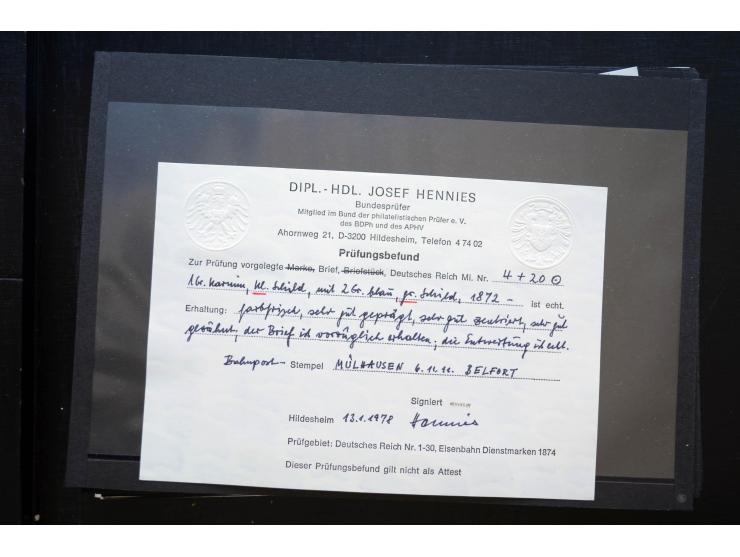 DIPL.-HDL. JOSEF HENNIES
Bundesprüfer
Mitglied im Bund der philatelistischen Prüfer e. V.
des BDPh und des APHV
Ahornweg 21, D-3200 Hildesheim, Telefon 4 74 02
Prüfungsbefund
Zur Prüfung vorgelegte Marke, Brief, Briefstück, Deutsches Reich Mi. Nr. 4 + 20 ⊙
1 Gr. karmin, kl. Schild, mit 2 Gr. blau, gr. Schild, 1872 – ist echt.
Erhaltung: farbfrisch, sehr gut geprägt, sehr gut zentriert, sehr gut
gezähnt, der Brief ist vorzüglich erhalten; die Entwertung ist echt.
Bahnpost- Stempel MÜLHAUSEN 6. 11. 11. BELFORT
Signiert HENNIES
Hildesheim 13.1.1978 Hennies
Prüfgebiet: Deutsches Reich Nr. 1-30, Eisenbahn Dienstmarken 1874
Dieser Prüfungsbefund gilt nicht als Attest